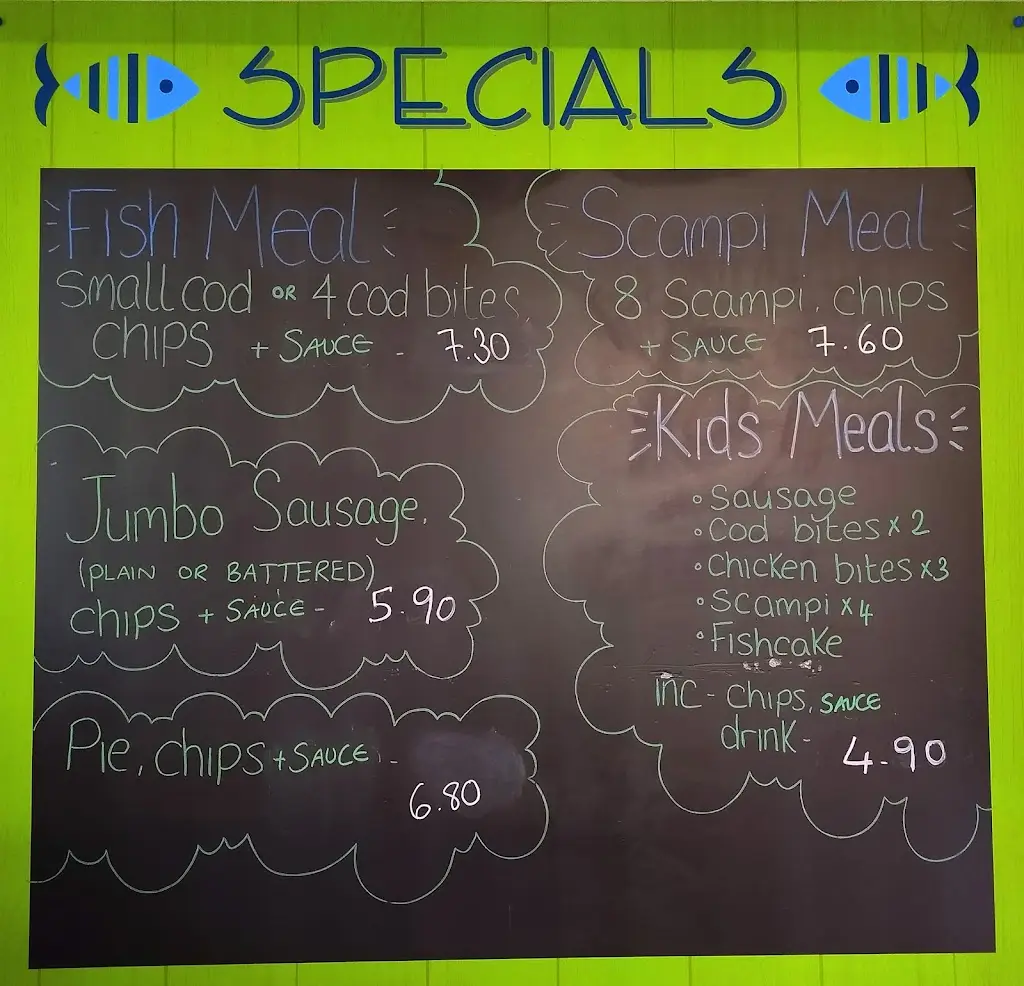 SPECIALS
Fish Meal
small cod OR 4 cod bites,
chips + SAUCE - 7.30
Jumbo Sausage,
(PLAIN OR BATTERED)
chips + SAUCE - 5.90
Pie, chips + SAUCE, -
6.80
Scampi Meal
8 Scampi, chips
+ SAUCE 7.60
Kids Meals
• Sausage
• Cod bites x 2
• Chicken bites x3
• Scampi x4
• Fishcake
INC - chips, SAUCE
drink - 4.90